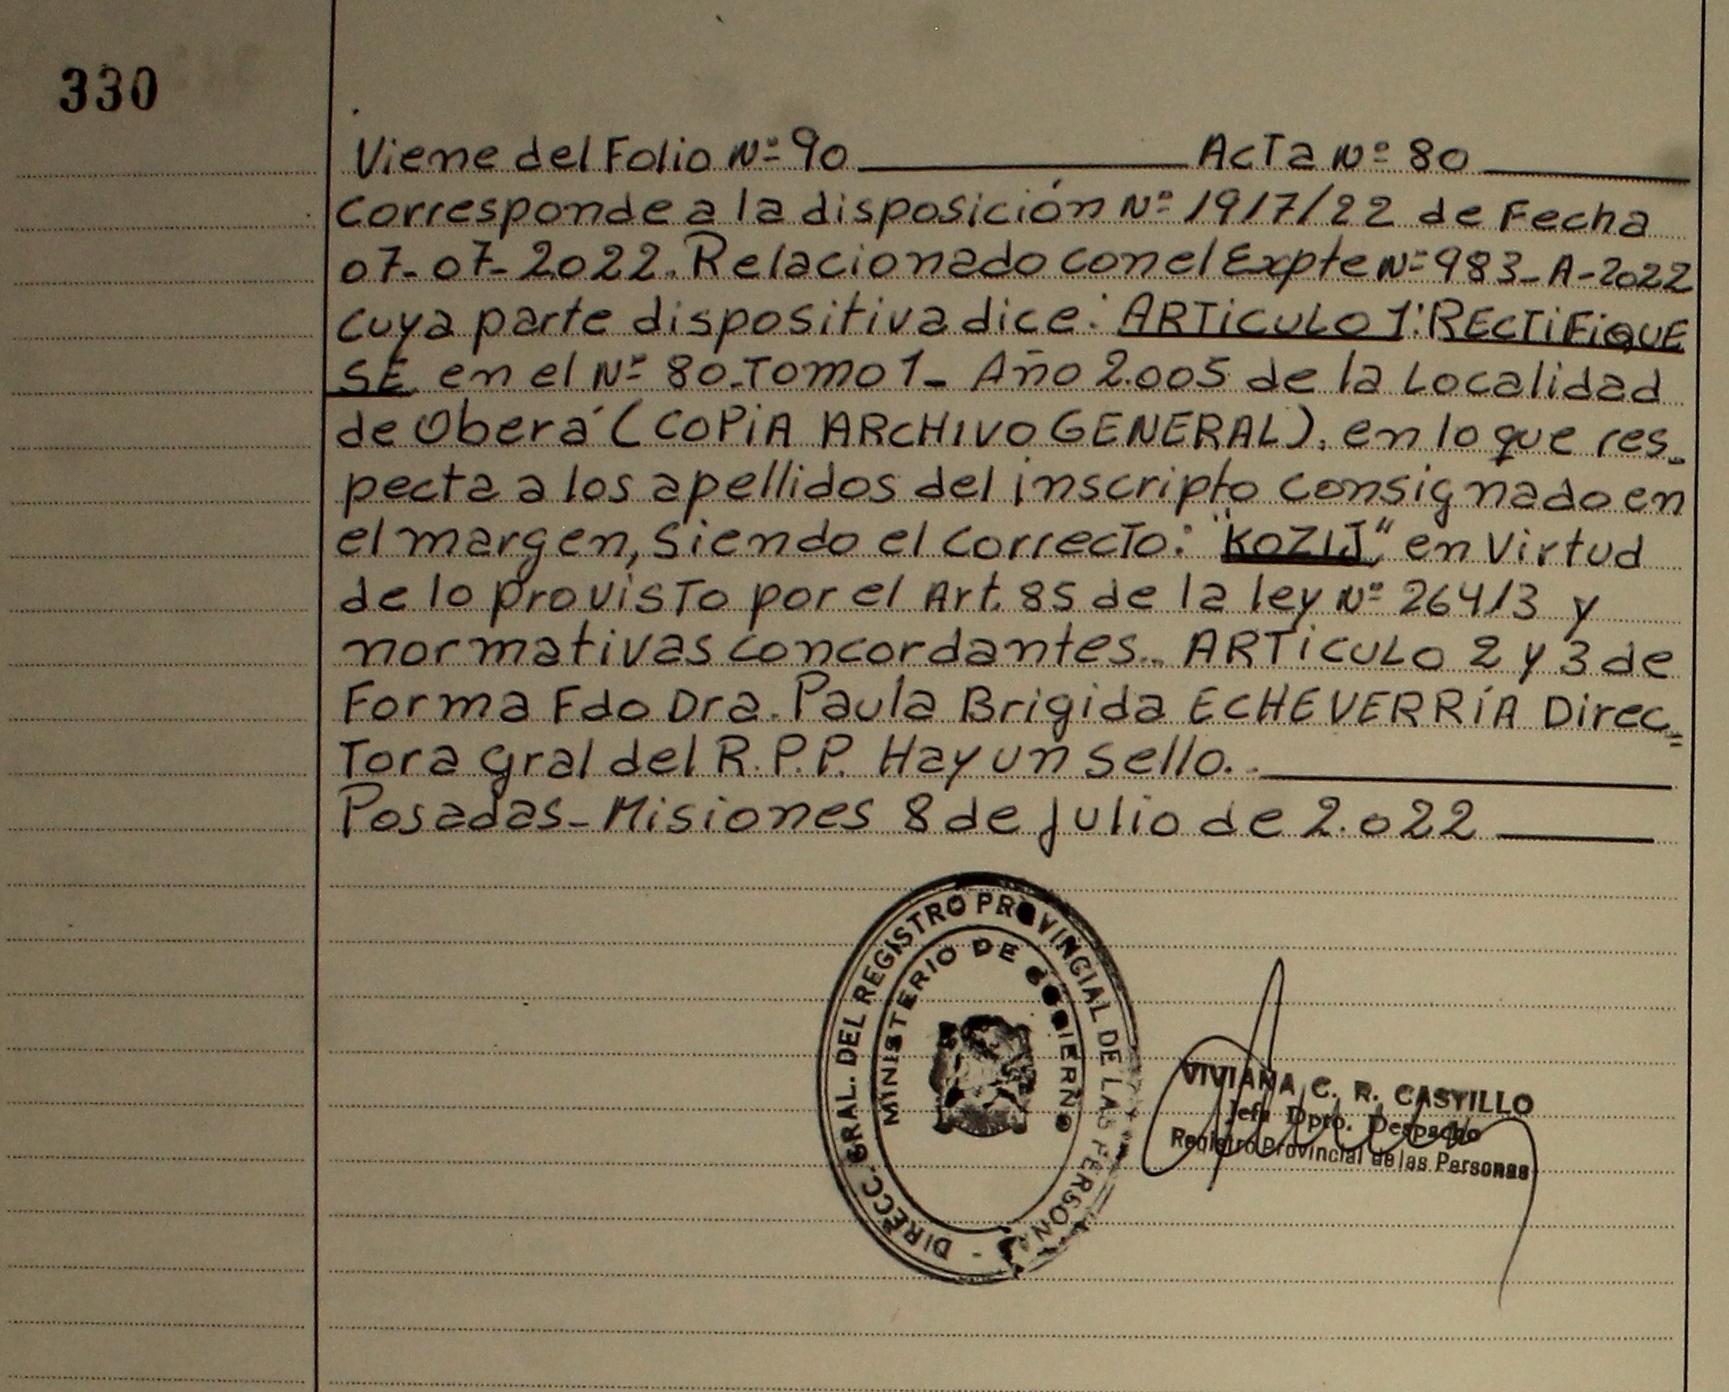 330
Viene del Folio Nº 90 ActA Nº 80
Corresponde a la disposición Nº 1917/22 de Fecha
07-07-2022. Relacionado con el Expte Nº 983-A-2022
cuya parte dispositiva dice: ARTICULO 1: RECTIFIQUE
SE en el Nº 80-Tomo 1- Año 2.005 de la Localidad
de Oberá (COPIA ARCHIVO GENERAL). en lo que res-
pecta a los apellidos del inscripto consignado en
el margen, siendo el correcto: "KOZIJ" en Virtud
de lo provisto por el Art. 85 de la ley Nº 26413 y
normativas concordantes.. ARTICULO 2 y 3 de
Forma Fdo Dra. Paula Brigida ECHEVERRÍA Direc=
Tora gral del R.P.P. Hay un sello..
Posadas-Misiones 8 de julio de 2.022
DIRECC. GRAL. DEL REGISTRO PROVINCIAL DE LAS PERSON
MINISTERIO DE GOBIERNO
VIVIANA C. R. CASTILLO
Jefa Dpto. Despacho
Registro Provincial de las Personas